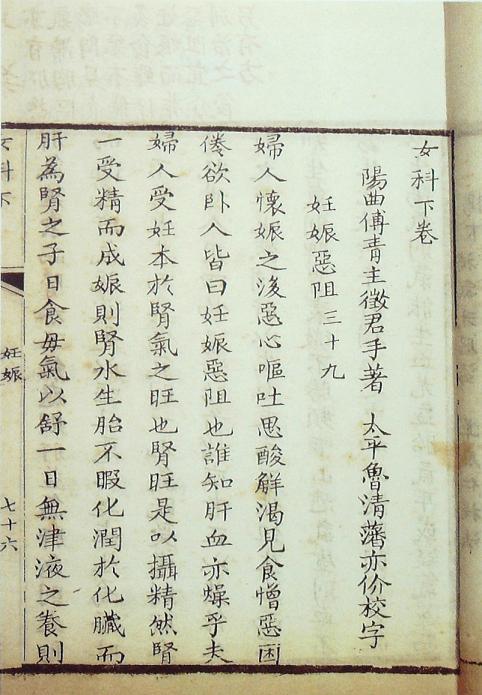 女科下卷
陽曲傅青主徵君手著　太平魯清藩亦价校字
妊娠惡阻三十九
婦人懷娠之後惡心嘔吐思酸解渴見食憎惡困
倦欲卧人皆曰妊娠惡阻也誰知肝血亦燥乎夫
婦人受妊本於腎氣之旺也腎旺是以攝精然腎
一受精而成娠則腎水生胎不暇化潤於化臟而
肝為腎之子日食母氣以舒一日無津液之養則
女科下
妊娠
七十六